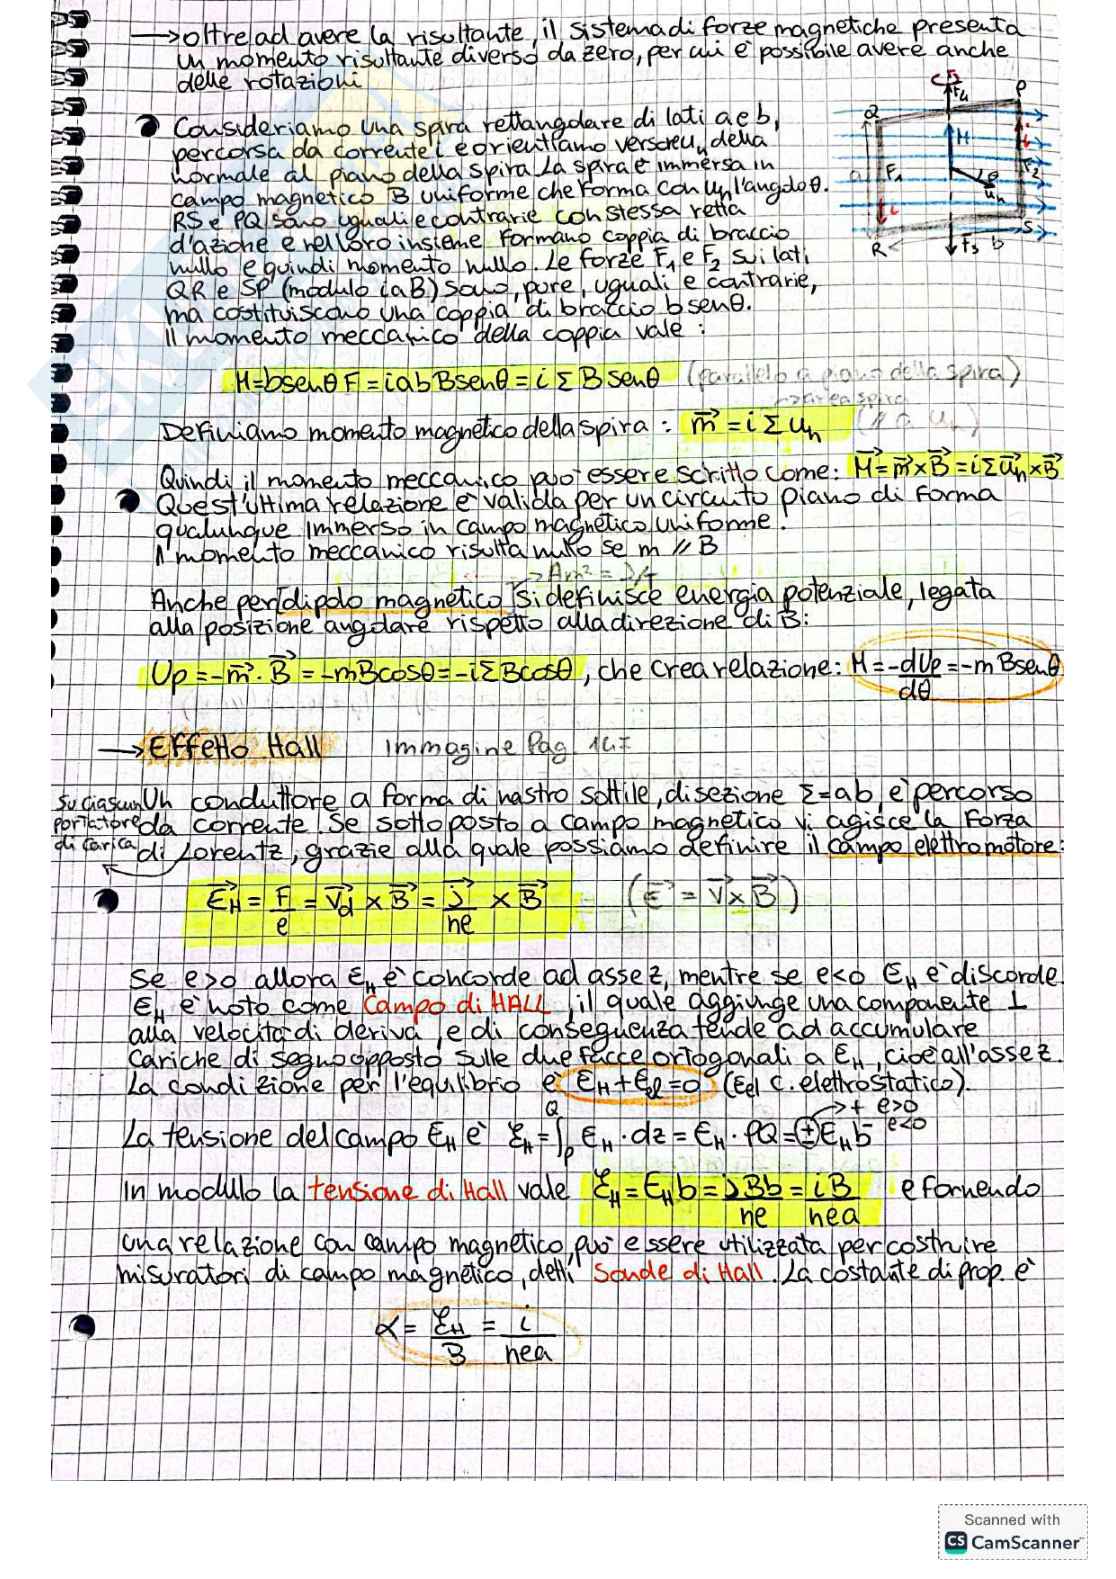 → oltre ad avere la risultante, il sistema di forze magnetiche presenta
un momento risultante diverso da zero, per cui è possibile avere anche
delle rotazioni
Consideriamo una spira rettangolare di lati a e b,
percorsa da corrente i e orientiamo verso u_n della
normale al piano della spira. La spira è immersa in
campo magnetico B uniforme che forma con u_n l'angolo θ.
RS e PQ sono uguali e contrarie con stessa retta
d'azione e nel loro insieme formano coppia di braccio
nullo e quindi momento nullo. Le forze F₁ e F₂ sui lati
QR e SP (modulo iaB) sono, pure, uguali e contrarie,
ma costituiscono una coppia di braccio b senθ.
Il momento meccanico della coppia vale:
Q P F₄ M F₁ F₂ a i i θ u_n R S F₃ b
M=bsenθ F = iabBsenθ = i Σ B senθ (parallelo a piano della spira)
→ area spira
Definiamo momento magnetico della spira: m⃗ = i Σ u_n (// a u_n)
Quindi il momento meccanico può essere scritto come: M⃗=m⃗×B⃗=iΣu⃗_n×B⃗
Quest'ultima relazione è valida per un circuito piano di forma
qualunque immerso in campo magnetico uniforme.
Il momento meccanico risulta nullo se m // B
→ Am² = J/T
Anche per dipolo magnetico si definisce energia potenziale, legata
alla posizione angolare rispetto alla direzione di B⃗:
Up=-m⃗·B⃗=-mBcosθ=-iΣBcosθ, che crea relazione: M=-dUp/dθ=-mBsenθ
→ Effetto Hall Immagine Pag. 147
Un conduttore a forma di nastro sottile, di sezione Σ=ab, è percorso
su ciascun portatore di carica
da corrente. Se sottoposto a campo magnetico vi agisce la Forza
di Lorentz, grazie alla quale possiamo definire il campo elettromotore:
E⃗_H = F/e = v⃗_d × B⃗ = j⃗/ne × B⃗ (E⃗ = v⃗×B⃗)
Se e>0 allora E_H è concorde ad asse z, mentre se e<0 E_H è discorde.
E_H è noto come Campo di HALL, il quale aggiunge una componente ⊥
alla velocità di deriva, e di conseguenza tende ad accumulare
cariche di segno opposto sulle due facce ortogonali a E_H, cioè all'asse z.
La condizione per l'equilibrio è E_H+E_el=0 (Eel c. elettrostatico).
La tensione del campo E_H è ℰ_H=∫_P^Q E_H·dz=E_H·PQ=±E_H b → + e>0 - e<0
In modulo la tensione di Hall vale ℰ_H=E_H b=jBb/ne=iB/nea e fornendo
una relazione con campo magnetico, può essere utilizzata per costruire
misuratori di campo magnetico, detti Sonde di Hall. La costante di prop. è
α = ℰ_H/B = i/nea
Scanned with
CS CamScanner